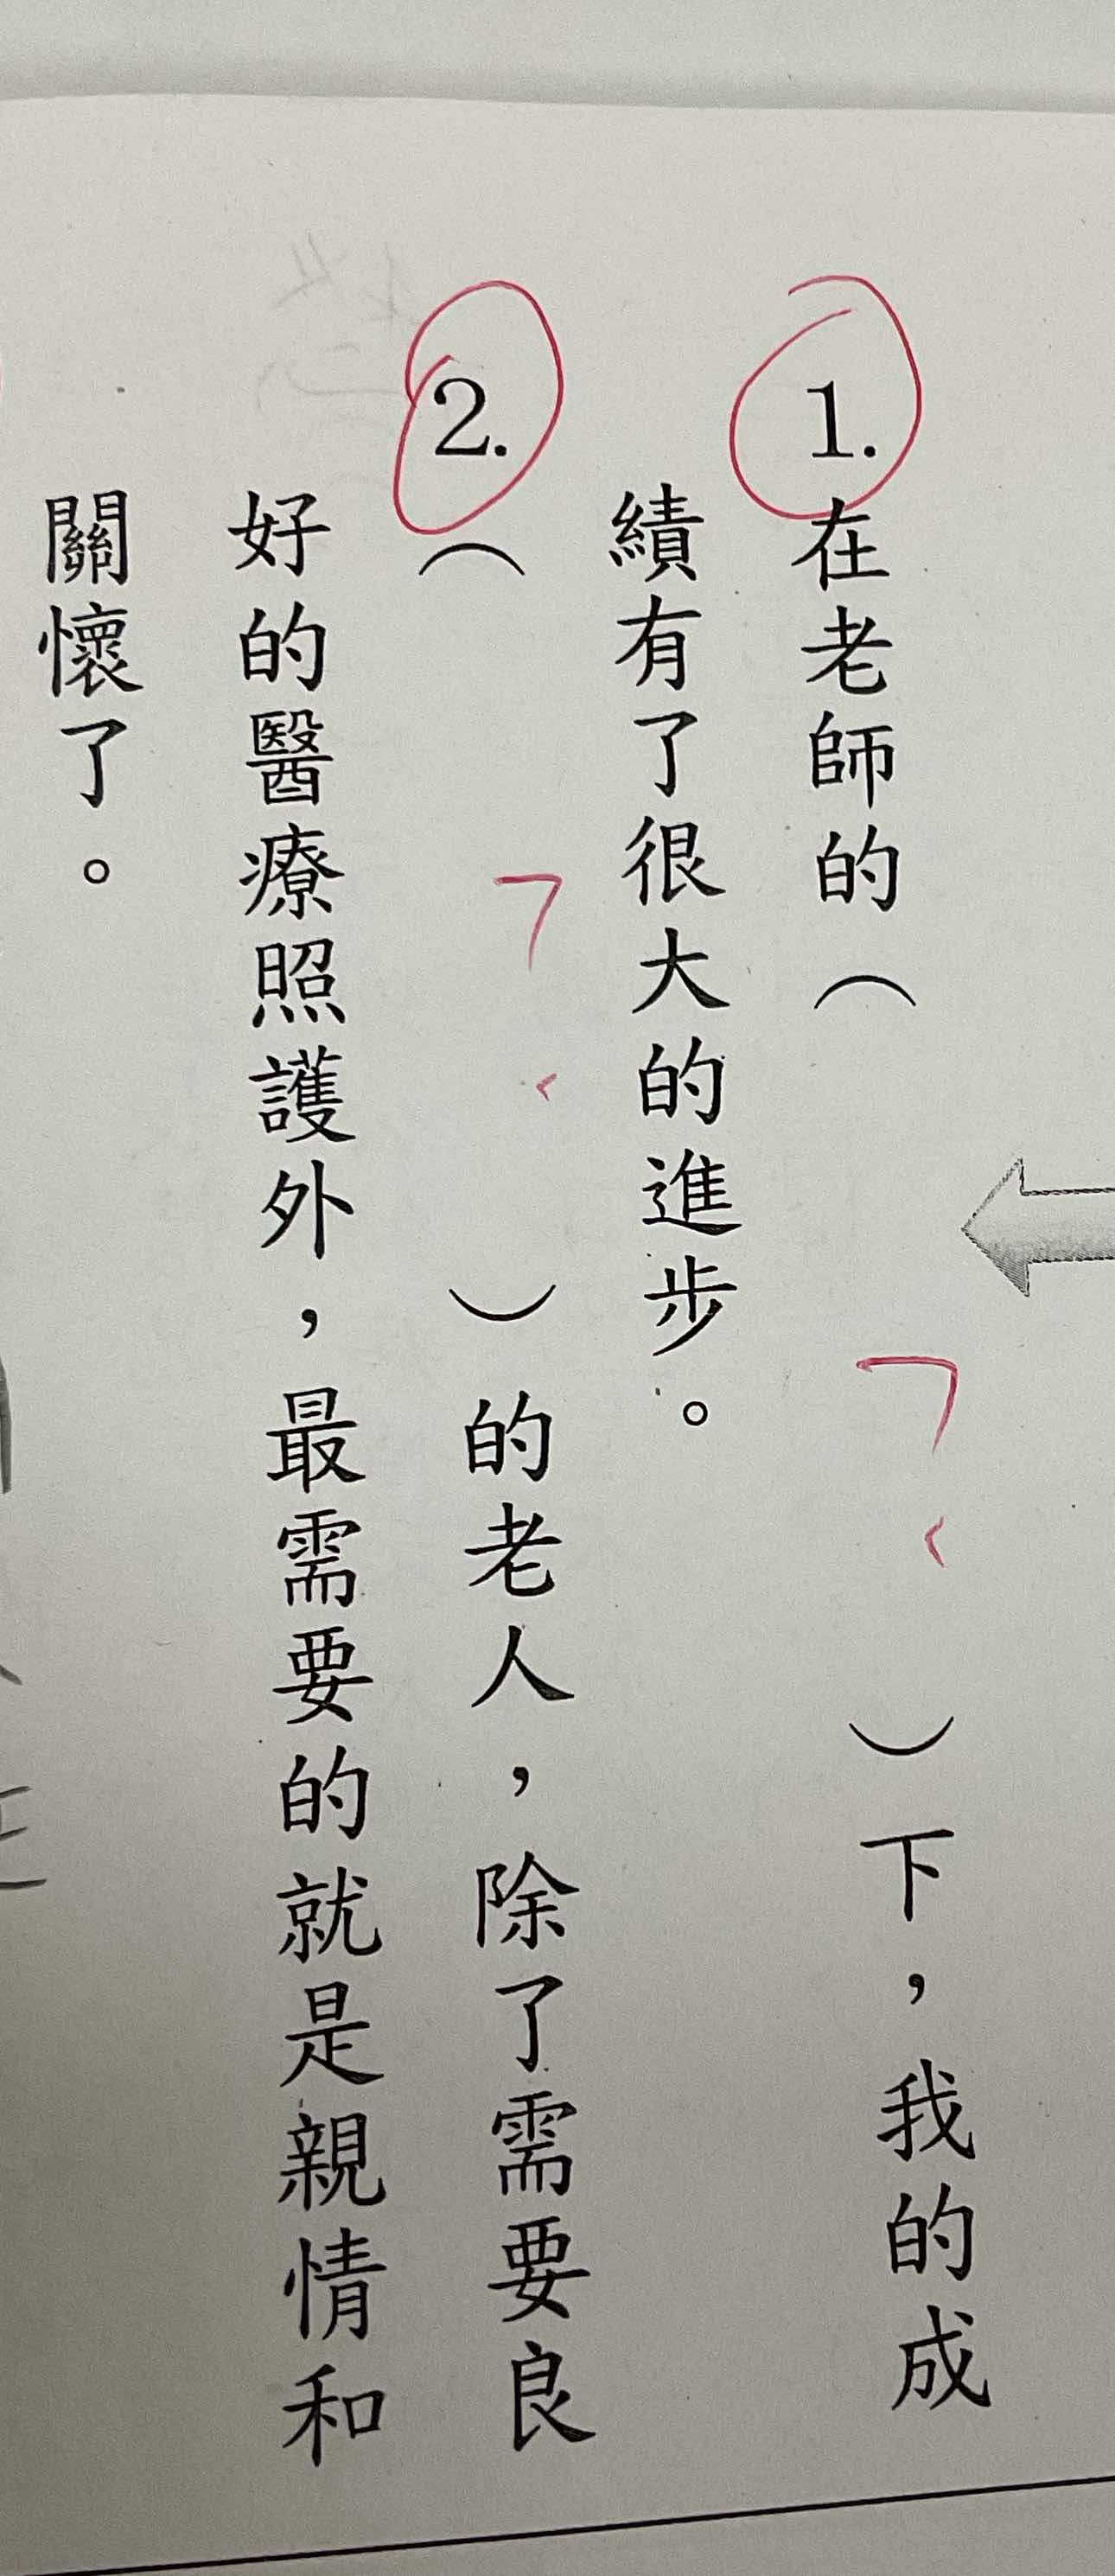 1.在老師的(　　　)下，我的成
績有了很大的進步。
2.(　　　)的老人，除了需要良
好的醫療照護外，最需要的就是親情和
關懷了。